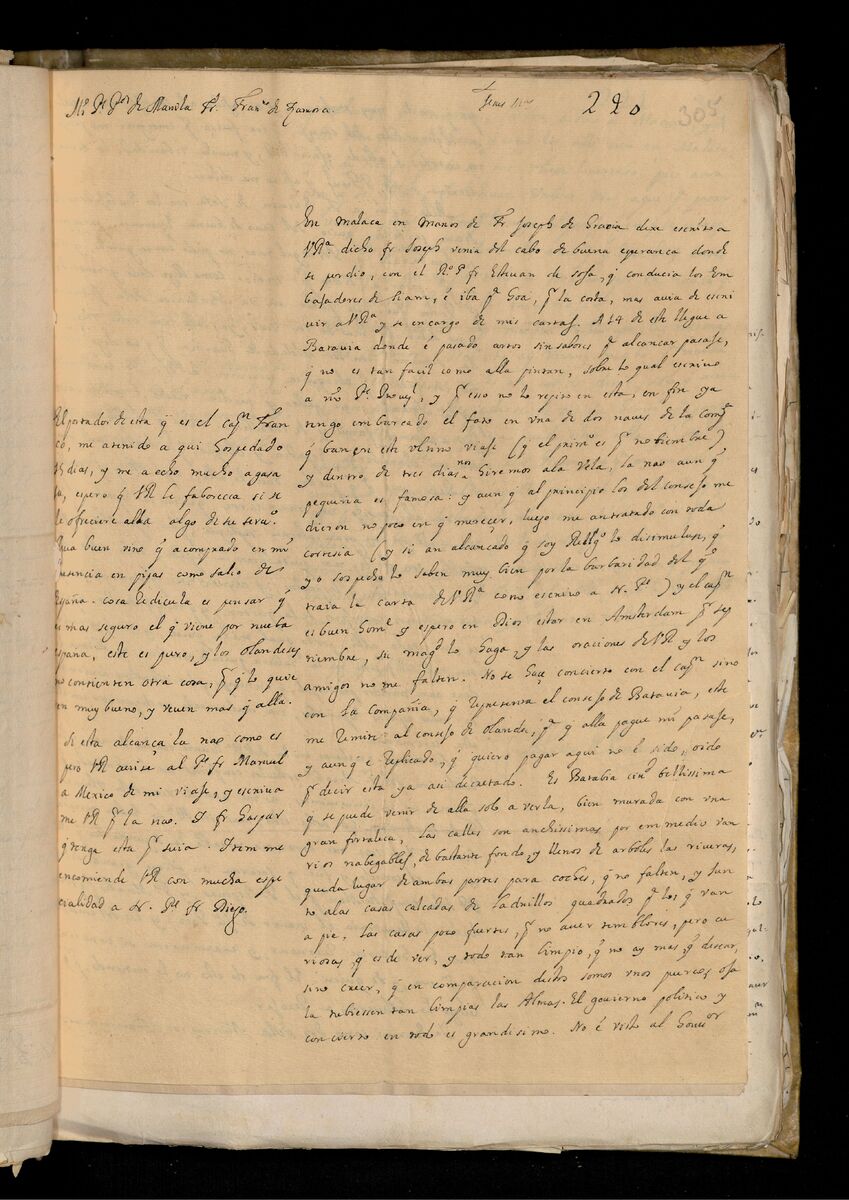 N. P. Por de Manila Fr. Franco de Zamora.
Jesus Mª
220
305
En malaca en manos de Fr. Joseph de Gracia dexe escrito a
V Rª. dicho fr Joseph venia del cabo de buena esperança donde
se perdio, con el Rº. Pe fr Esteuan de sosa, q̃ conducia los Em
bajadores de siam, é iba pª Goa, pr la costa, mas auia de escri
uir a V Rª y se encargo de mis cartas. A 14 de este llegue a
Batauia donde é pasado artos sinsabores pr alcançar pasaje,
q̃ no es tan facil como alla pintan, sobre lo qual escriuo
a nro Pe Prouyl, y pr esso no lo repito en esta, en fin ya
tengo embarcado el fato en vna de dos naues de la compª
q̃ haçen este vltimo viaje (q̃ el primo es pr nouiembre)
y dentro de tres dias nos hiremos ala vela, la nao aun q̃
pequeña es famosa: y aun q̃ al principio los del consejo me
dieron no poco en q̃ mereçer, luego me an tratado con toda
cortesia (y si an alcançado q̃ soy Religo lo disimulan, q̃
yo sospecho lo saben muy bien por la barbaridad del q̃
traia la carta de V Rª como escriuo a N. Pe) y el capn
es buen home y espero en Dios estar en Amsterdam pr sep
tiembre, su magd lo haga, y las oraciones de V R y los
amigos no me falten. No se haçe concierto con el capn sino
con la Compañia, q̃ representa el consejo de Batauia, este
me remite al consejo de olanda, pª q̃ alla pague mi pasaje,
y aunq̃ é replicado, q̃ quiero pagar aqui no é sido, oido
pr decir esta ya asi decretado. Es Batabia ciud bellissima
q̃ se puede venir de alla solo a verla, bien murada con vna
gran fortaleça, las calles son anchissimas por em medio van
rios nabegables, de bastante fondo, y llenos de arboles las riueras,
queda lugar de ambas partes para coches, q̃ no faltan, y jun
to alas casas calçadas de ladrillos quadrados pª los q̃ van
a pie. las casas poco fuertes, pr no auer temblores, pero cu
riosas, q̃ es de ver, y todo tan limpio, q̃ no ay mas q̃ desear,
sino creer, q̃ en comparacion destos somos vnos puercos, oja
la tubiessen tan limpias las Almas. El gouierno politico y
concierto en todo es grandisimo. No é visto al Gouor
El portador de esta q̃ es el capn Fran
co, me a tenido a qui hospedado
15 dias, y me a echo mucho agasa
jo, espero q̃ V R le faborecia si se
le ofreciere alla algo de su seruo.
lleua buen vino q̃ a comprado en mi
presencia en pipas como salio de
España. cosa rediculа es pensar q̃
es mas seguro el q̃ viene por nueba
españa, este es puro, y los olandeses
no consienten otra cosa, pr q̃ lo quie
ren muy bueno, y veuen mas q̃ alla.
si esta alcança la nao como es
pero V R auise al Pe fr Manuel
a Mexico de mi viaje, y escriua
me V R pr la nao. I fr Gaspar
q̃ tenga esta pr suia. Item me
encomiende V R con mucha espe
cialidad a N. Pe fr Diego.